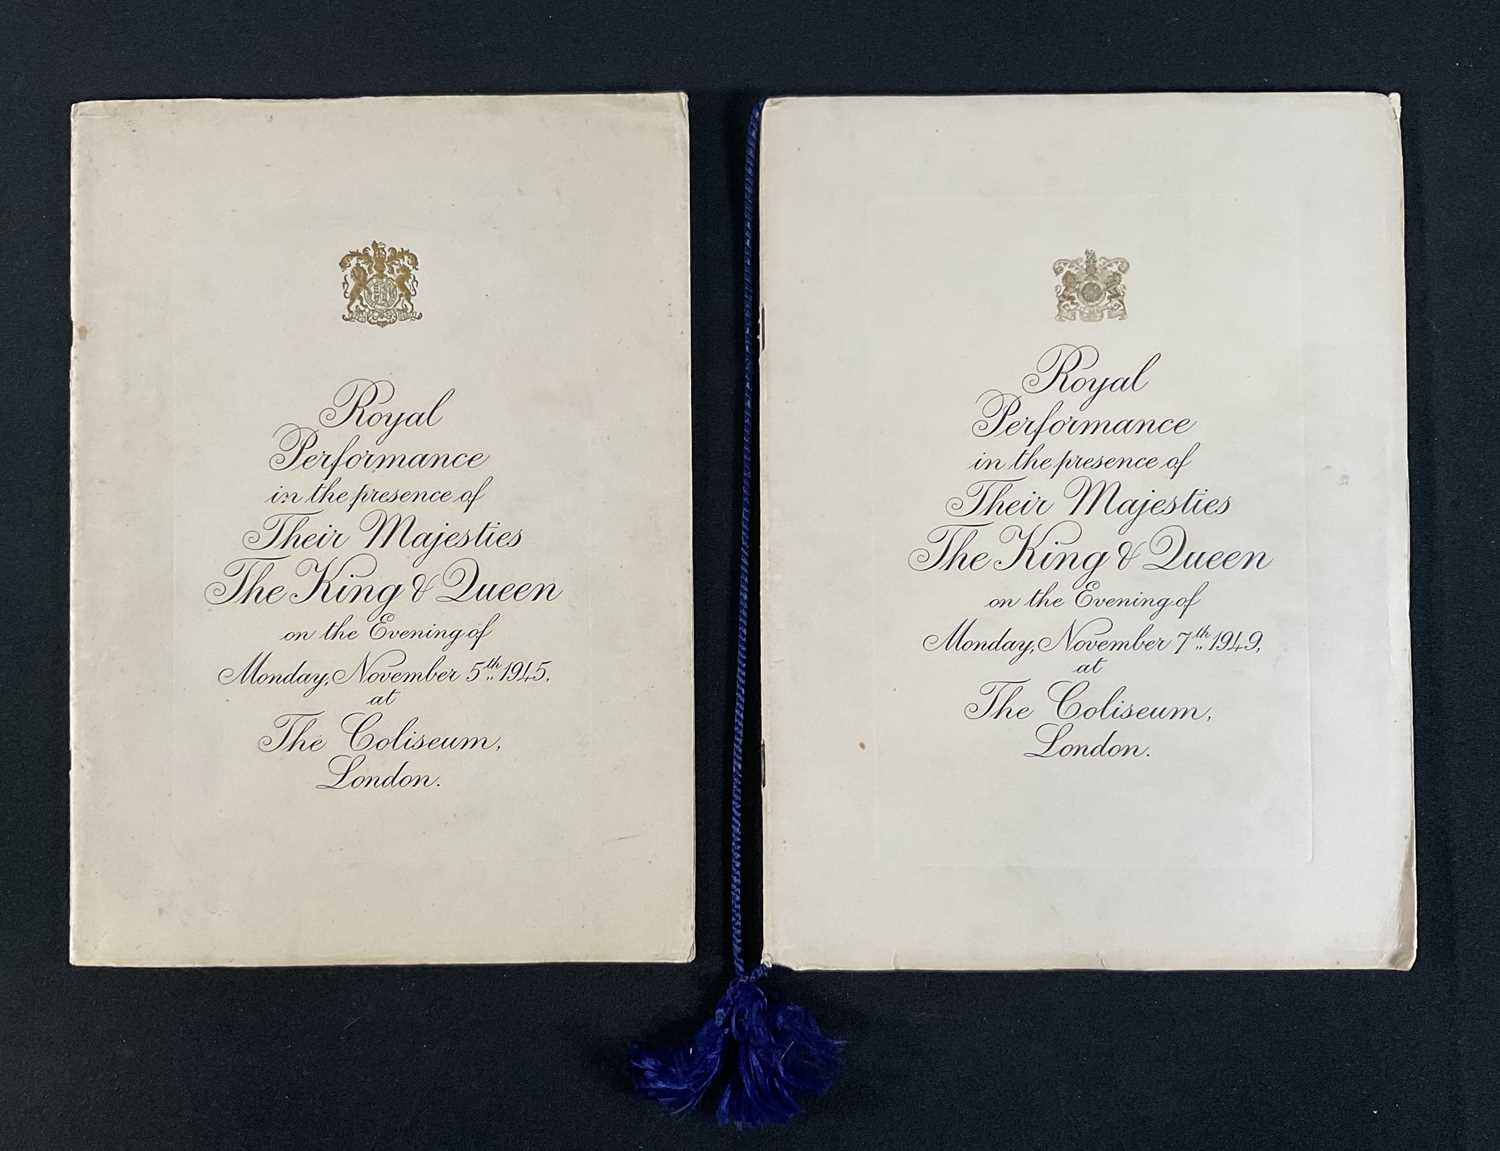 Royal
Performance
in the presence of
Their Majesties
The King & Queen
on the Evening of
Monday, November 5th 1945,
at
The Coliseum,
London.
Royal
Performance
in the presence of
Their Majesties
The King & Queen
on the Evening of
Monday, November 7th 1949,
at
The Coliseum,
London.